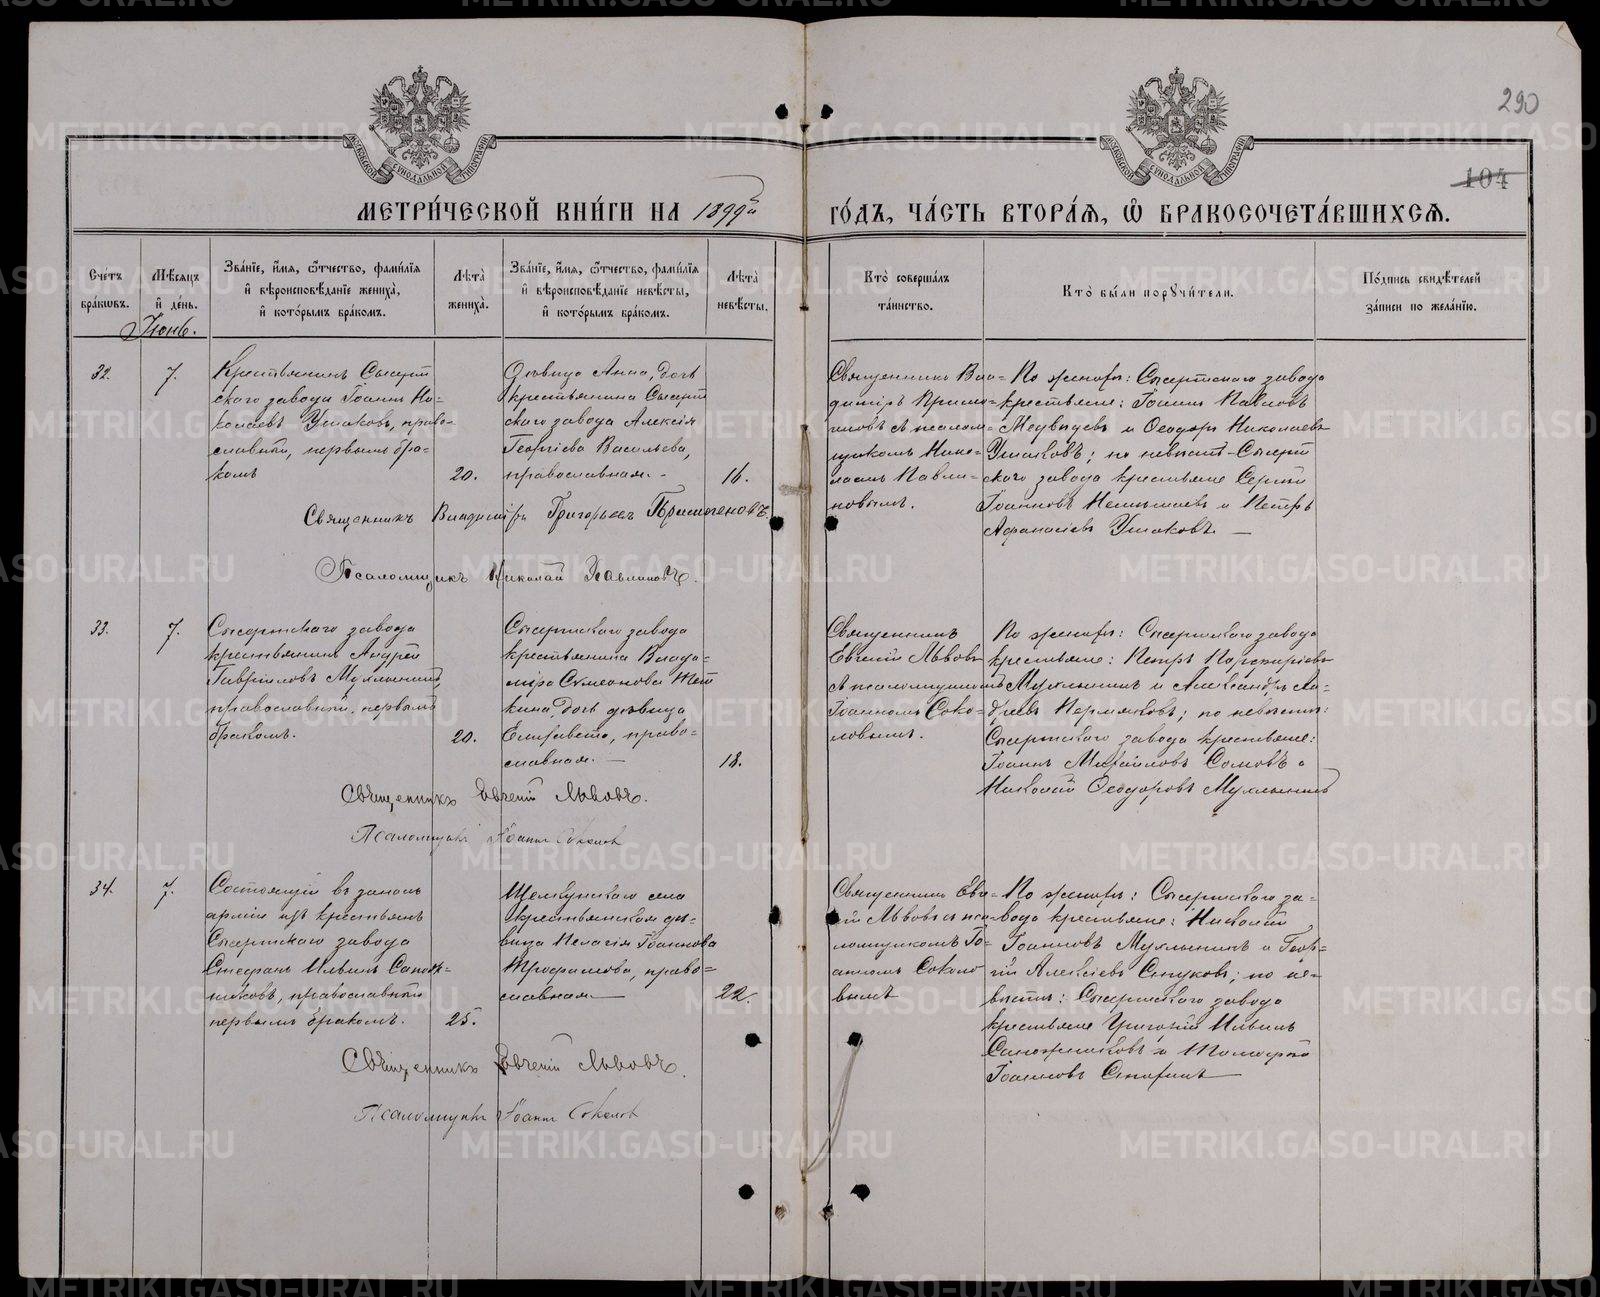 290
104
МОСКОВСКОЙ СѴНОДАЛЬНОЙ ТИПОГРАФІИ
МОСКОВСКОЙ СѴНОДАЛЬНОЙ ТИПОГРАФІИ
МЕТРИ́ЧЕСКОЙ КНИ́ГИ НА 1899й ГО́ДЪ, ЧА́СТЬ ВТОРА́Ѧ, Ѽ БРАКОСОЧЕТА́ВШИХСѦ.
Сче́тъ бра́кωвъ.
Мѣ́сѧцъ и҆ де́нь.
Зва́нїе, и҆́мѧ, ѻ҆́тчество, фами́лїѧ и҆ вѣроисповѣ́данїе жениха̀, и҆ кото́рымъ бра́комъ.
Лѣта̀ жениха̀.
Зва́нїе, и҆́мѧ, ѻ҆́тчество, фами́лїѧ и҆ вѣроисповѣ́данїе невѣ́сты, и҆ кото́рымъ бра́комъ.
Лѣта̀ невѣ́сты.
Кто̀ соверша́лъ та́инство.
Кто̀ бы́ли порꙋчи́тели.
По́дпись свидѣ́телей за́писи по жела́нїю.
Іюнь.
32.
7.
Крестьянинъ Сысерт
скаго завода Іоаннъ Ни-
колаевъ Ушаковъ, право-
славный, первымъ бра-
комъ
20.
Дѣвица Анна, дочь
крестьянина Сысерт
скаго завода Алексія
Георгіева Васильева,
православная.-
16.
Священникъ Вла-
диміръ Примо-
геновъ съ псалом-
щикомъ Нико-
лаемъ Павли-
новымъ.
По женихѣ: Сысертскаго завода
крестьяне: Іоаннъ Павловъ
Медвѣдевъ и Ѳеодоръ Николаевъ
Ушаковъ; по невѣстѣ-Сысерт
скаго завода крестьяне Сергій
Іоанновъ и Петръ
Афанасіевъ Ушаковъ. —
Священникъ Владиміръ Григорьевъ Примогеновъ.
Псаломщикъ Николай Павлиновъ.
33.
7.
Сысертскаго завода
крестьянинъ Андрей
Гавріиловъ Мухлынинъ,
православный, первымъ
бракомъ.
20.
Сысертскаго завода
крестьянина Влади-
міра Сѵмеонова Тет
кина, дочь дѣвица
Елизавета, право-
славная. —
18.
Священникъ
Евгеній Львовъ
съ псаломщикомъ
Іоанномъ Соко-
ловымъ.
По женихѣ: Сысертскаго завода
крестьяне: Петръ Порфиріевъ
Мухлынинъ и Александръ Ан-
дреевъ Пермяковъ; по невѣстѣ:
Сысертскаго завода крестьяне:
Іоаннъ Михайловъ Сомовъ и
Николай Ѳеодоровъ Мухлынинъ
Священникъ Евгеній Львовъ.
Псаломщикъ Іоаннъ Соколовъ
34.
7.
Состоящій въ запасѣ
арміи изъ крестьянъ
Сысертскаго завода
Стефанъ Ильинъ Сапож-
никовъ, православный
первымъ бракомъ.
25.
Щелкунскаго села
крестьянская дѣ-
вица Пелагія Іоаннова
Трофимова, право-
славная —
22.
Священникъ Евге-
ній Львовъ съ пса-
ломщикомъ Іо-
анномъ Соколо
вымъ
По женихѣ: Сысертскаго за-
вода крестьяне: Николай
Іоанновъ Мухлынинъ и Геор-
гій Алексіевъ по не-
вѣстѣ: Сысертскаго завода
крестьяне Григорій Ильинъ
Сапожниковъ и Тимофей
Іоанновъ —
Священникъ Евгеній Львовъ.
Псаломщикъ Іоаннъ Соколовъ
METRIKI.GASO-URAL.RU